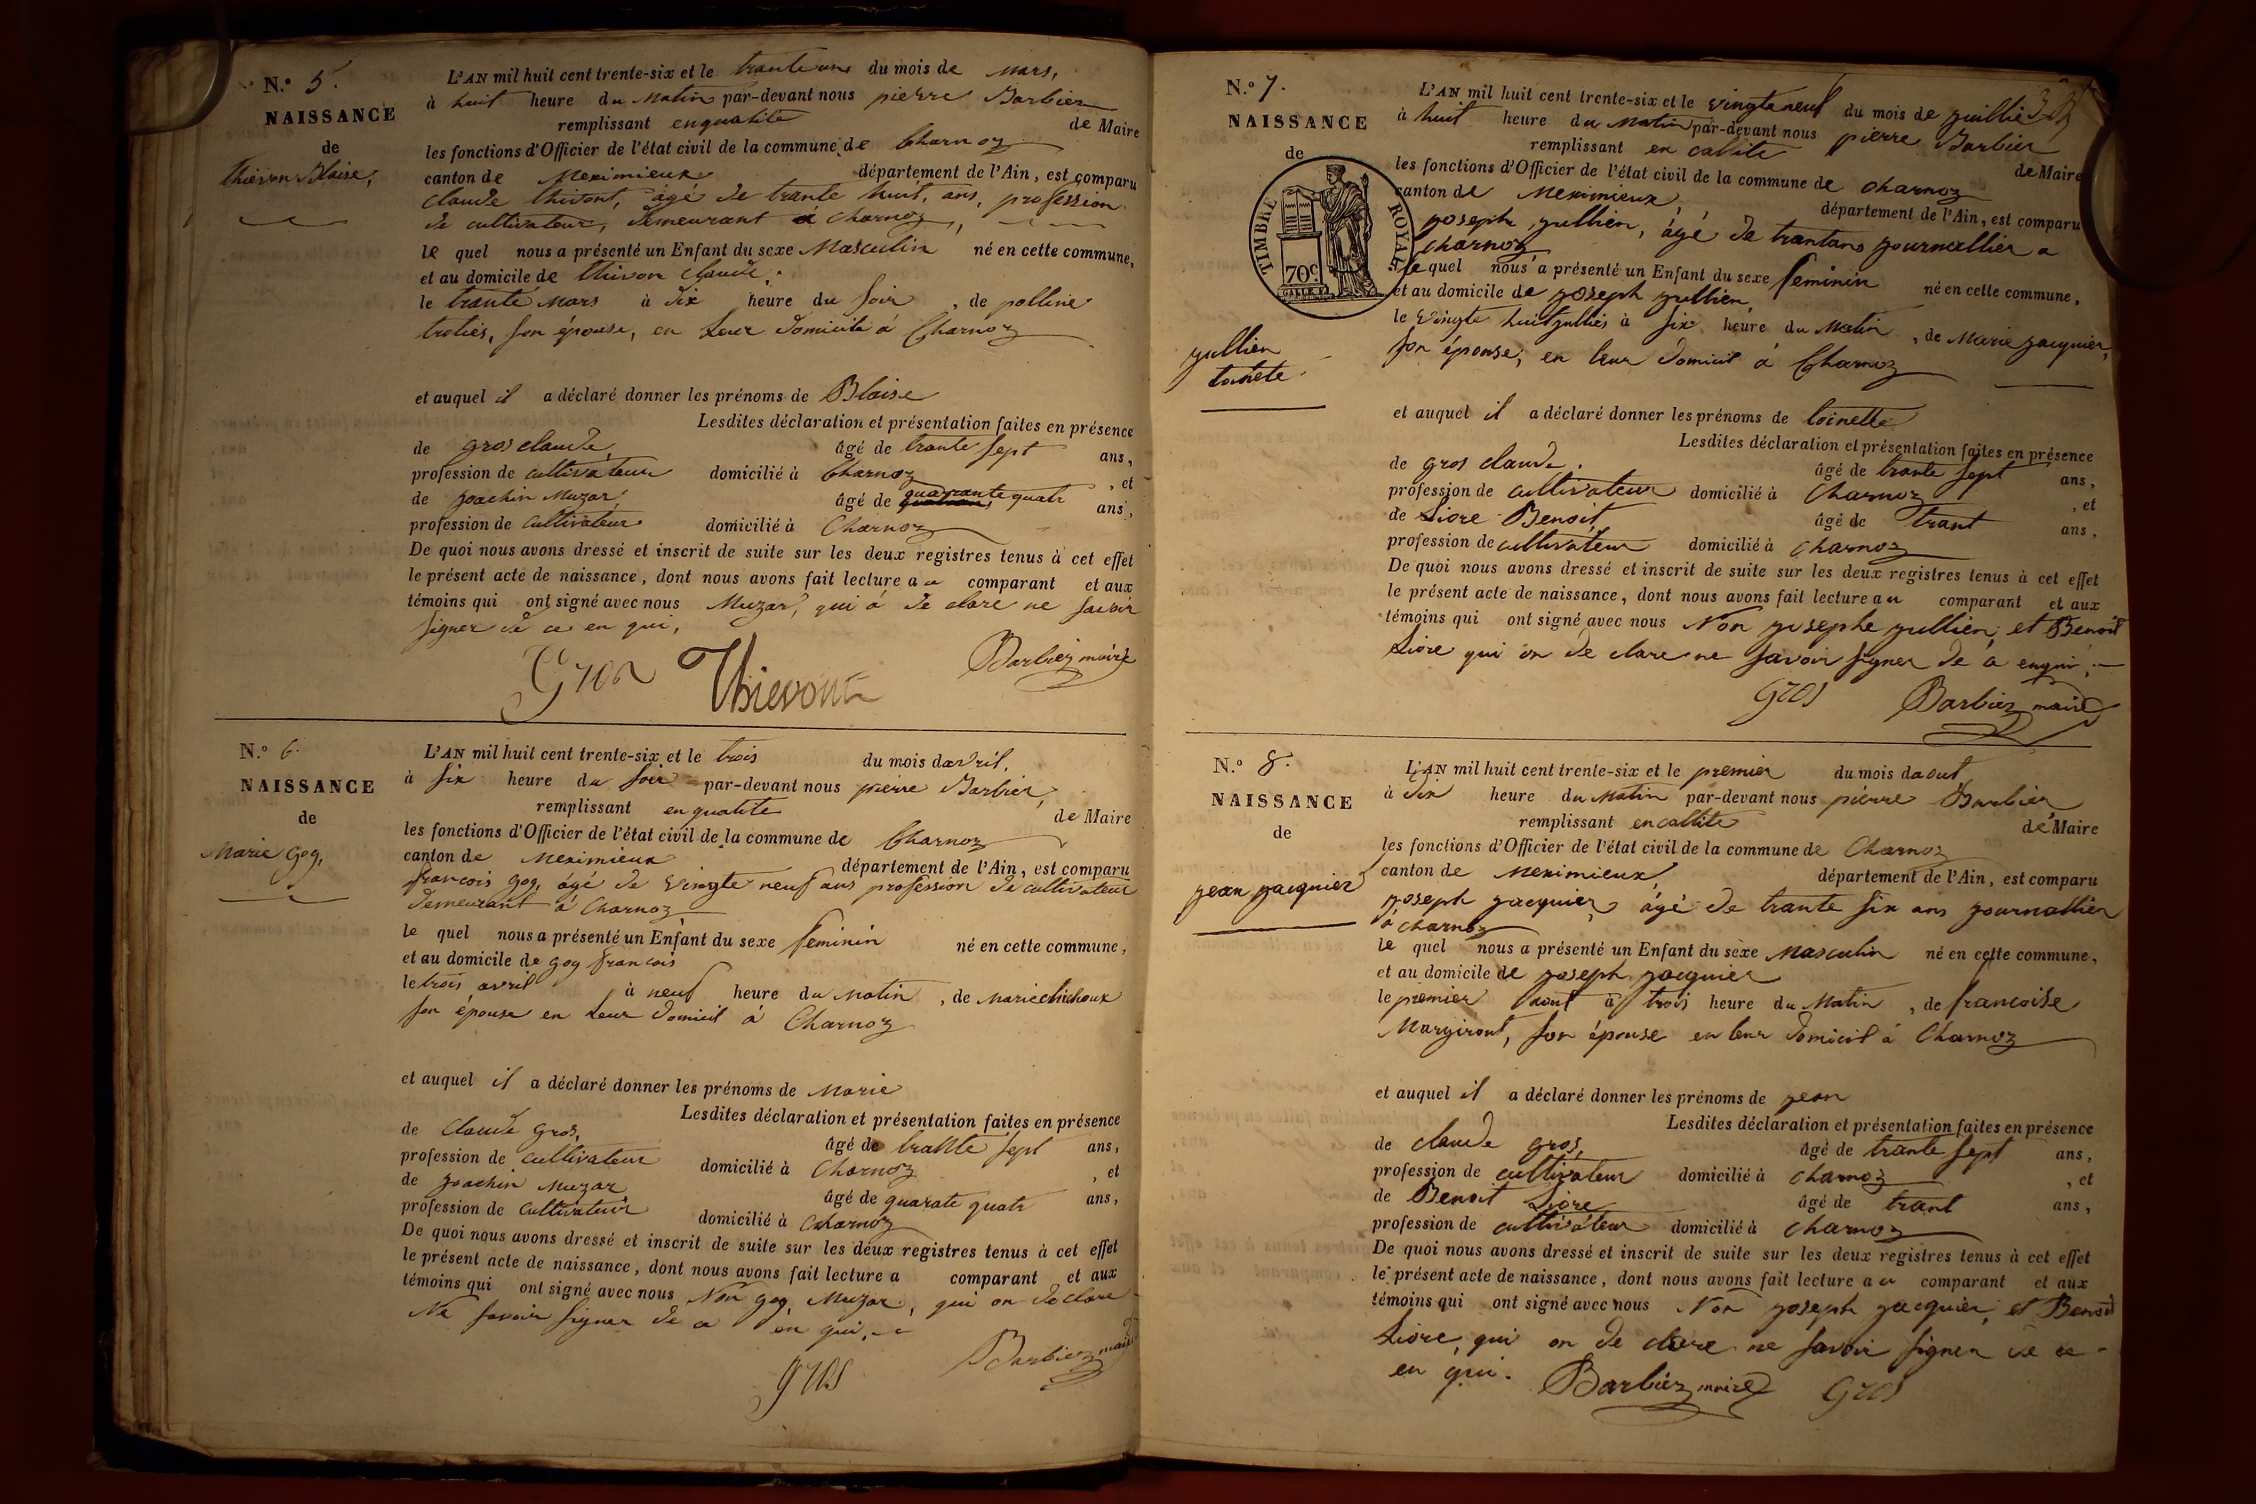 N.° 5.
NAISSANCE
de
thivon Blaise,
L'AN mil huit cent trente-six et le trante une du mois de mars,
à huit heure du matin par-devant nous pierre Barbier
remplissant enqualite de Maire
les fonctions d'Officier de l'état civil de la commune de Charnoz
canton de Meximieux département de l'Ain, est comparu
claude thivont, âgé de trante huit, ans, profession
de cultivateur, demeurant à charnoz,
le quel nous a présenté un Enfant du sexe Masculin né en cette commune,
et au domicile de thivon claude.
le trante mars à dix heure du soir, de polline
troliés, son épouse, en Leur domicile à Charnoz
et auquel il a déclaré donner les prénoms de Blaise
Lesdites déclaration et présentation faites en présence
de gros claude, âgé de trante sept ans,
profession de cultivateur domicilié à Charnoz, et
de joachin Muzar, âgé de quarante quatr ans,
profession de cultivateur domicilié à Charnoz
De quoi nous avons dressé et inscrit de suite sur les deux registres tenus à cet effet
le présent acte de naissance, dont nous avons fait lecture au comparant et aux
témoins qui ont signé avec nous Muzar, qui á de clare ne savoir
signer de ce en qui,
Gros Thievont Barbier maire
N.° 6.
NAISSANCE
de
Marie gog,
L'AN mil huit cent trente-six et le trois du mois davril,
à six heure du soir par-devant nous pierre Barbier,
remplissant en qualite de Maire
les fonctions d'Officier de l'état civil de la commune de Charnoz
canton de Meximieux département de l'Ain, est comparu
françois gog, âgé de vingte neuf ans profession de cultivateur
demeurant à Charnoz,
le quel nous a présenté un Enfant du sexe feminin né en cette commune,
et au domicile de gog francois
le trois avril à neuf heure du matin, de marie chichoux
son épouse en Leur domicil à Charnoz
et auquel il a déclaré donner les prénoms de Marie
Lesdites déclaration et présentation faites en présence
de Claude Gros, âgé de trante sept ans,
profession de cultivateur domicilié à Charnoz, et
de joachin Muzar âgé de quarate quatr ans,
profession de cultivateur domicilié à Charnoz
De quoi nous avons dressé et inscrit de suite sur les deux registres tenus à cet effet
le présent acte de naissance, dont nous avons fait lecture a comparant et aux
témoins qui ont signé avec nous Non gog, Muzar, qui on declare
Ne savoir signer de ce en qui,
gros Barbier maire
N.° 7.
NAISSANCE
de
TIMBRE ROYAL
70c
jullien
toinete.
L'AN mil huit cent trente-six et le vingte neuf du mois de juillie
à huit heure du matin par-devant nous pierre Barbier
remplissant en calite de Maire
les fonctions d'Officier de l'état civil de la commune de Charnoz
canton de Meximieux, département de l'Ain, est comparu
joseph jullien, âgé de trantans journallier a
charnoz
le quel nous a présenté un Enfant du sexe feminin né en cette commune,
et au domicile de joseph jullien,
le vingte huit jullies à six heure du Matin, de Marie jacquier,
son épouse, en leur domicil à Charnoz
et auquel il a déclaré donner les prénoms de toinette
Lesdites déclaration et présentation faites en présence
de gros claude. âgé de trante sept ans,
profession de cultivateur domicilié à Charnoz, et
de Liore Benoit, âgé de trant ans,
profession de cultivateur domicilié à charnoz
De quoi nous avons dressé et inscrit de suite sur les deux registres tenus à cet effet
le présent acte de naissance, dont nous avons fait lecture au comparant et aux
témoins qui ont signé avec nous Non josephe jullien, et Benoit
Liore qui on de clare ne savoir signer de à enqui.
gros Barbier maire
N.° 8.
NAISSANCE
de
jean jacquier
L'AN mil huit cent trente-six et le premier du mois daout,
à dix heure du matin par-devant nous pierre Barbier
remplissant encallite de Maire
les fonctions d'Officier de l'état civil de la commune de Charnoz
canton de Meximieux, département de l'Ain, est comparu
joseph jacquier, âgé de trante six ans journallier
à charnoz
le quel nous a présenté un Enfant du sexe Masculin né en cette commune,
et au domicile de joseph jacquier
le premier aout à trois heure du Matin, de francoise
Margiront, son épouse en leur domicil à Charnoz
et auquel il a déclaré donner les prénoms de jean
Lesdites déclaration et présentation faites en présence
de claude gros, âgé de trante sept ans,
profession de cultivateur domicilié à charnoz, et
de Benoit Liore âgé de trant ans,
profession de cultivateur domicilié à charnoz
De quoi nous avons dressé et inscrit de suite sur les deux registres tenus à cet effet
le présent acte de naissance, dont nous avons fait lecture au comparant et aux
témoins qui ont signé avec nous Non joseph jacquier, et Benoit
Liore, qui on de clare ne savoir signer de ce
en qui. Barbier maire gros